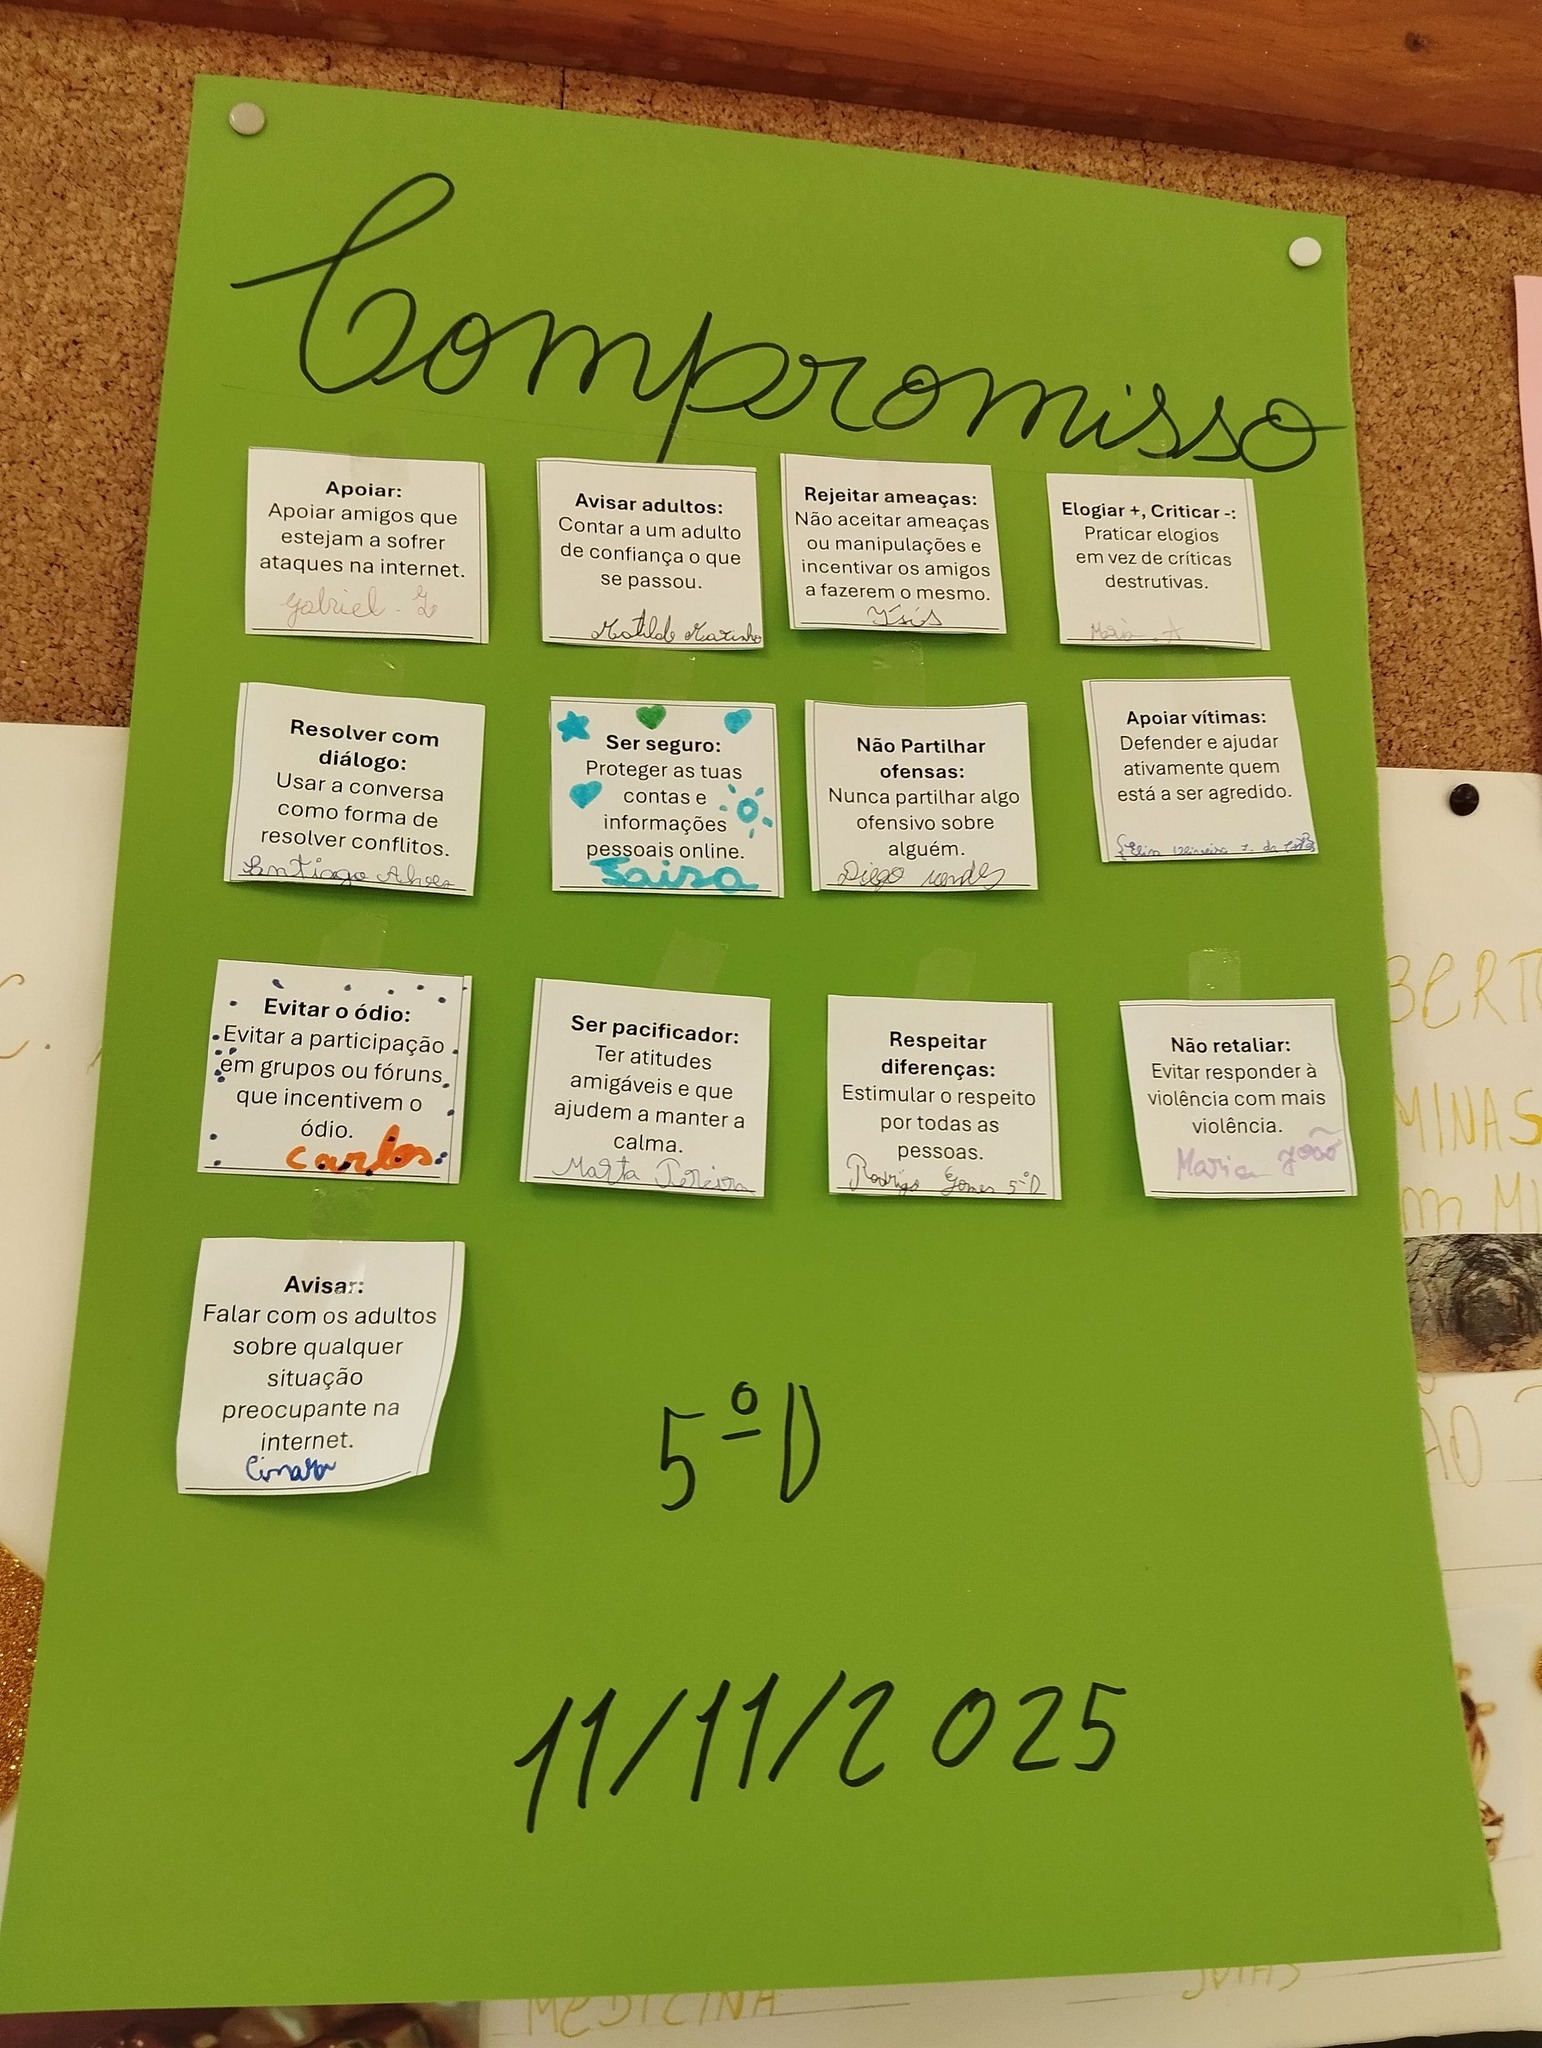 Compromisso
Apoiar:
Apoiar amigos que
estejam a sofrer
ataques na internet.
Gabriel.
Avisar adultos:
Contar a um adulto
de confiança o que
se passou.
Matilde Marinho
Rejeitar ameaças:
Não aceitar ameaças
ou manipulações e
incentivar os amigos
a fazerem o mesmo.
Ísis
Elogiar +, Criticar -:
Praticar elogios
em vez de críticas
destrutivas.
Maria . A
Resolver com
diálogo:
Usar a conversa
como forma de
resolver conflitos.
Santiago Alves
Ser seguro:
Proteger as tuas
contas e
informações
pessoais online.
Não Partilhar
ofensas:
Nunca partilhar algo
ofensivo sobre
alguém.
Diego
Apoiar vítimas:
Defender e ajudar
ativamente quem
está a ser agredido.
Evitar o ódio:
Evitar a participação
em grupos ou fóruns
que incentivem o
ódio.
Carlos
Ser pacificador:
Ter atitudes
amigáveis e que
ajudem a manter a
calma.
Marta
Respeitar
diferenças:
Estimular o respeito
por todas as
pessoas.
Rodrigo Gomes 5ºD
Não retaliar:
Evitar responder à
violência com mais
violência.
Maria João
Avisar:
Falar com os adultos
sobre qualquer
situação
preocupante na
internet.
5ºD
11/11/2025
MINAS
MEDICINA